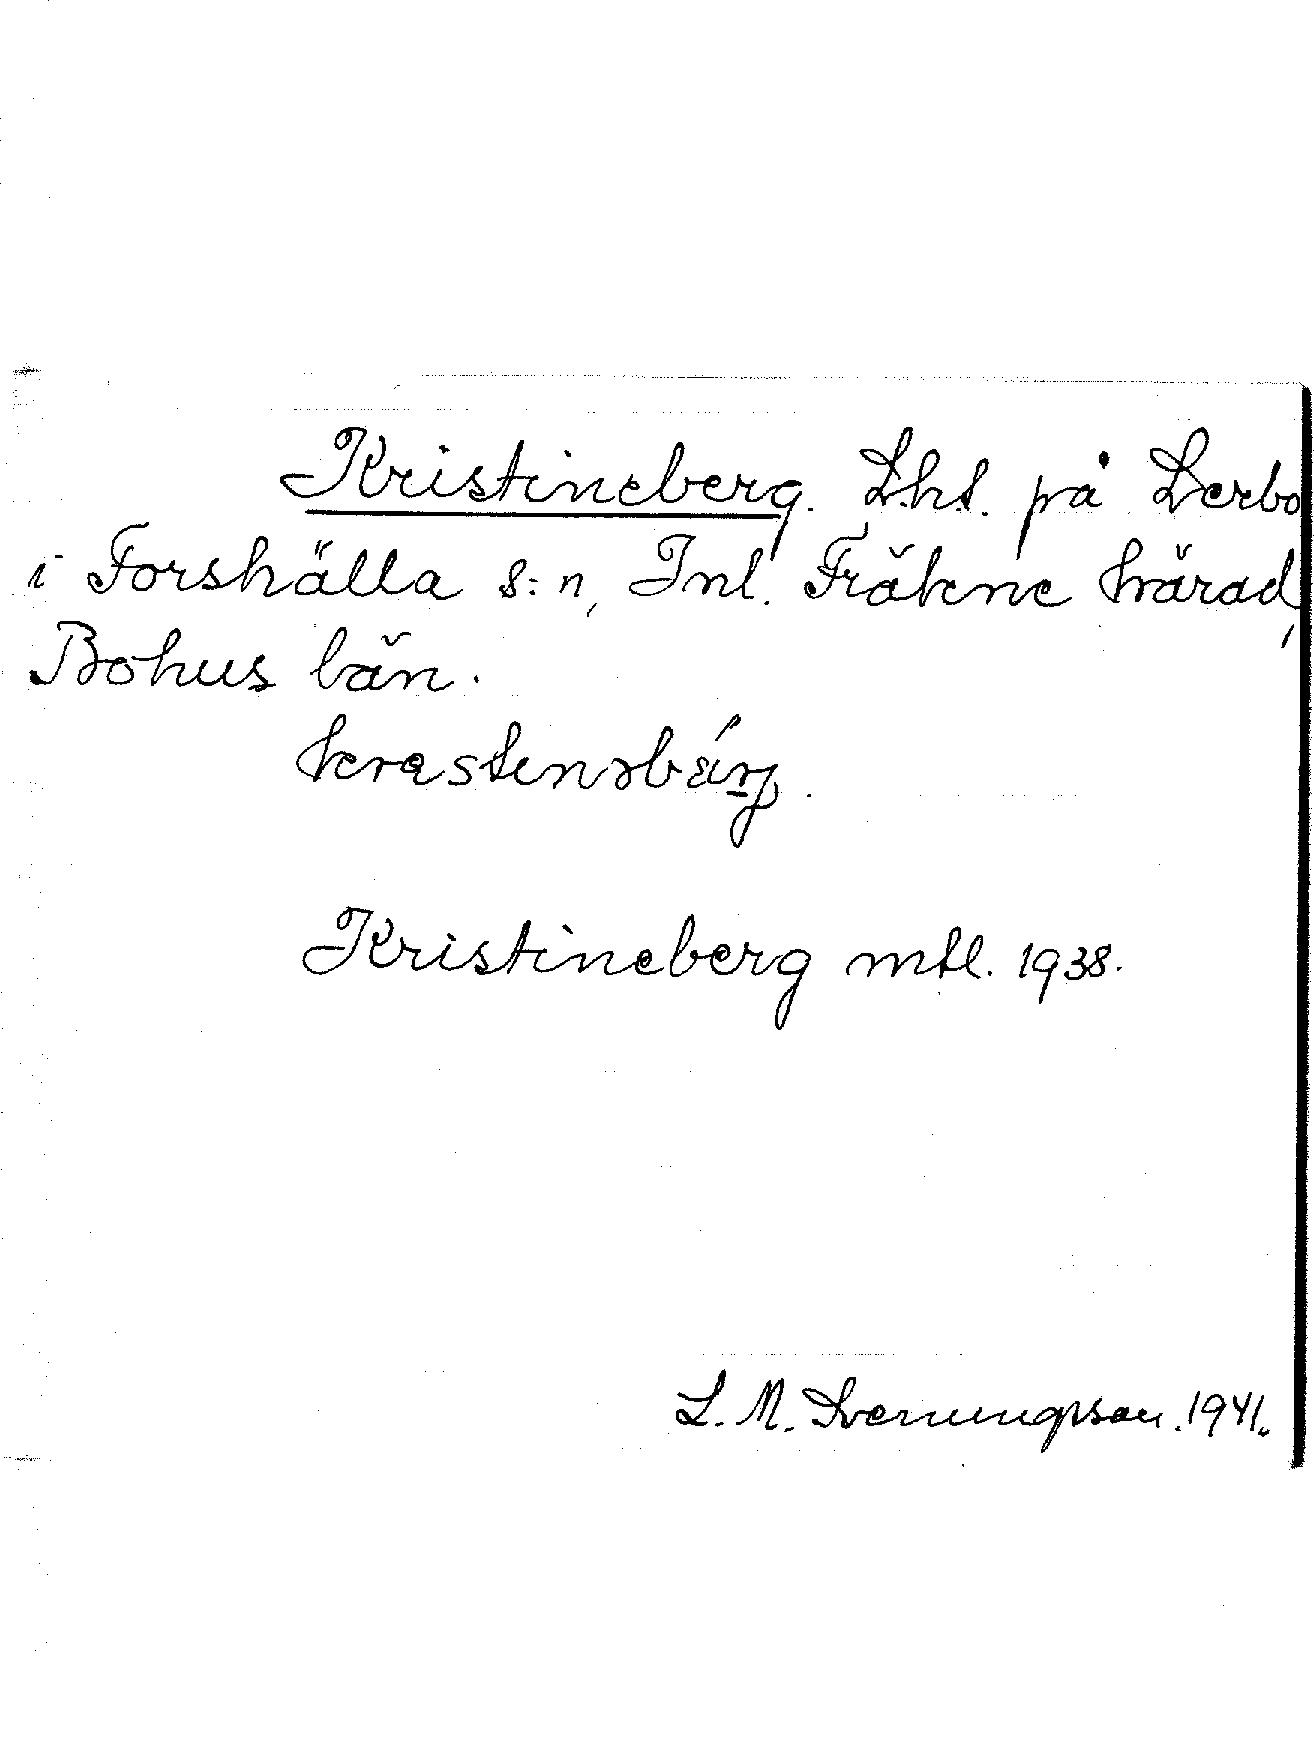 Kristineberg. Lht. på Lerbo
i Forshälla s:n, Inl. Fräkne härad,
Bohus län.
Kristineberg mtl. 1938.
L. M. Svenungsson. 1941.